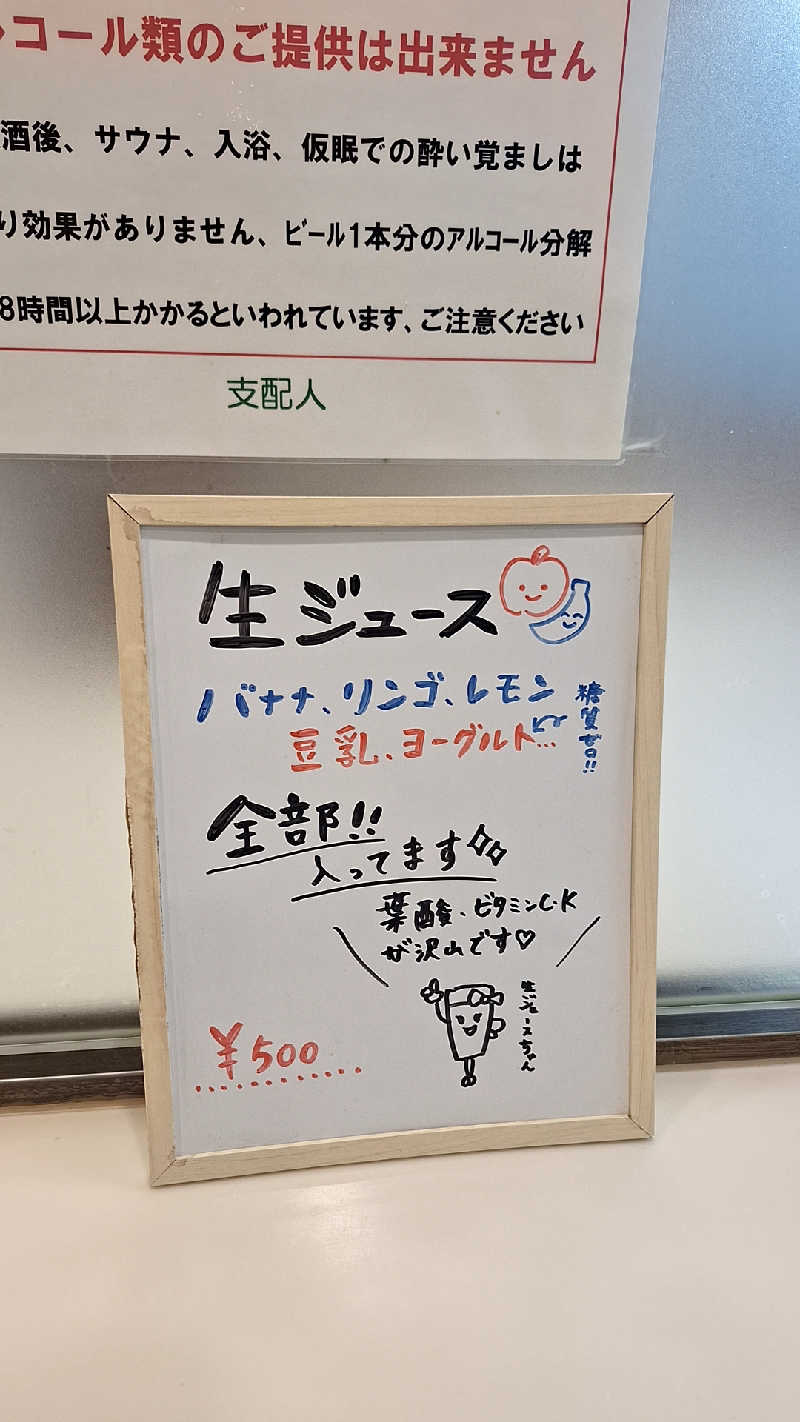 コール類のご提供は出来ません
酒後、サウナ、入浴、仮眠での酔い覚ましは
り効果がありません、ビール1本分のアルコール分解
8時間以上かかるといわれています、ご注意ください
支配人
生ジュース
バナナ、リンゴ、レモン
豆乳、ヨーグルト…
糖質ゼロ!!
全部!!
入ってます
葉酸、ビタミンC・K
が沢山です♡
生ジュースちゃん
¥500